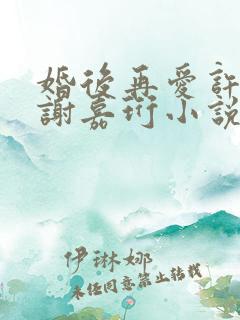 婚後再愛許
謝嘉珩小說
伊琳娜
未任同意禁止转载